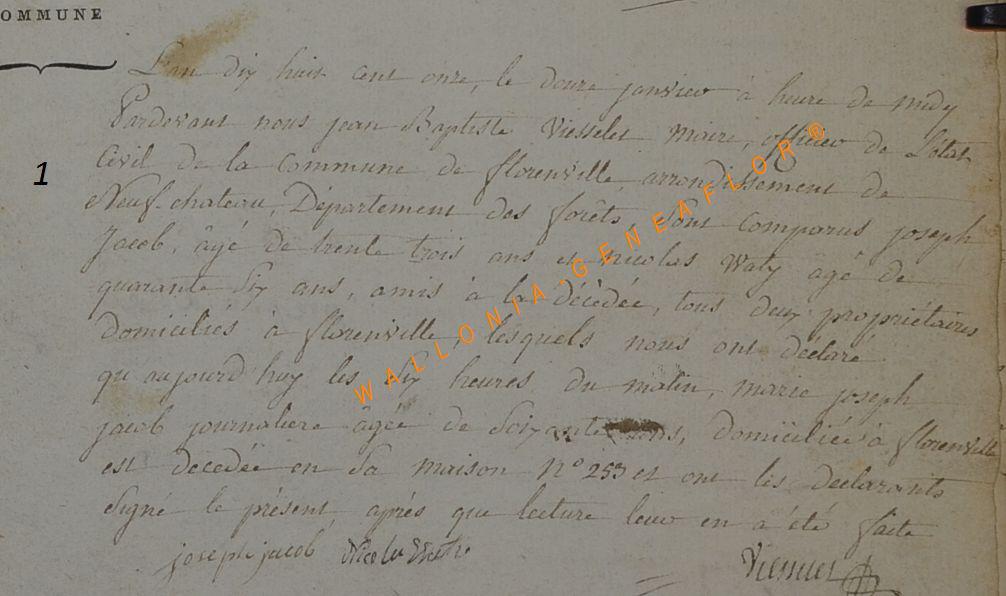 OMMUNE
L'an dix huit cent onze, le douze janvier à heure de midy
Pardevant nous jean Baptiste Viesselet Maire, officier de L'état
1
Civil de la Commune de florenville, arrondissement de
Neufchateau, Département des forêts Sont Comparus joseph
Jacob, âgé de trente trois ans et nicolas Waty âgé de
quarante Six ans, amis à la décédée, tous deux propriétaires
domiciliés à florenville, lesquels nous ont déclaré
qu'aujourd'huy les Six heures du matin, marie joseph
jacob journaliere âgée de Soixante ans, domiciliée à florenville
est décedée en Sa maison n° 253 et ont les declarants
Signé le présent après que lecture leur en a été faite
joseph jacob Nicolas
WALLONIA-GENEAFLOR®